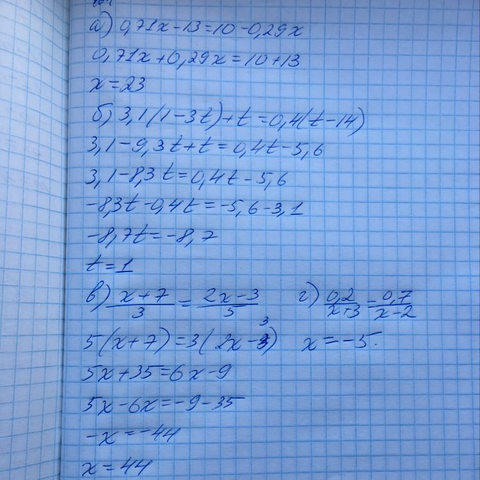 а) 0,71x-13=10-0,29x
0,71x+0,29x=10+13
x=23
б) 3,1(1-3t)+t=0,4(t-14)
3,1-9,3t+t=0,4t-5,6
3,1-8,3t=0,4t-5,6
-8,3t-0,4t=-5,6-3,1
-8,7t=-8,7
t=1
в) (x+7)/3=(2x-3)/5
г) 0,2/(x+3)=0,7/(x-2)
5(x+7)=3(2x-3)
x=-5.
5x+35=6x-9
5x-6x=-9-35
-x=-44
x=44